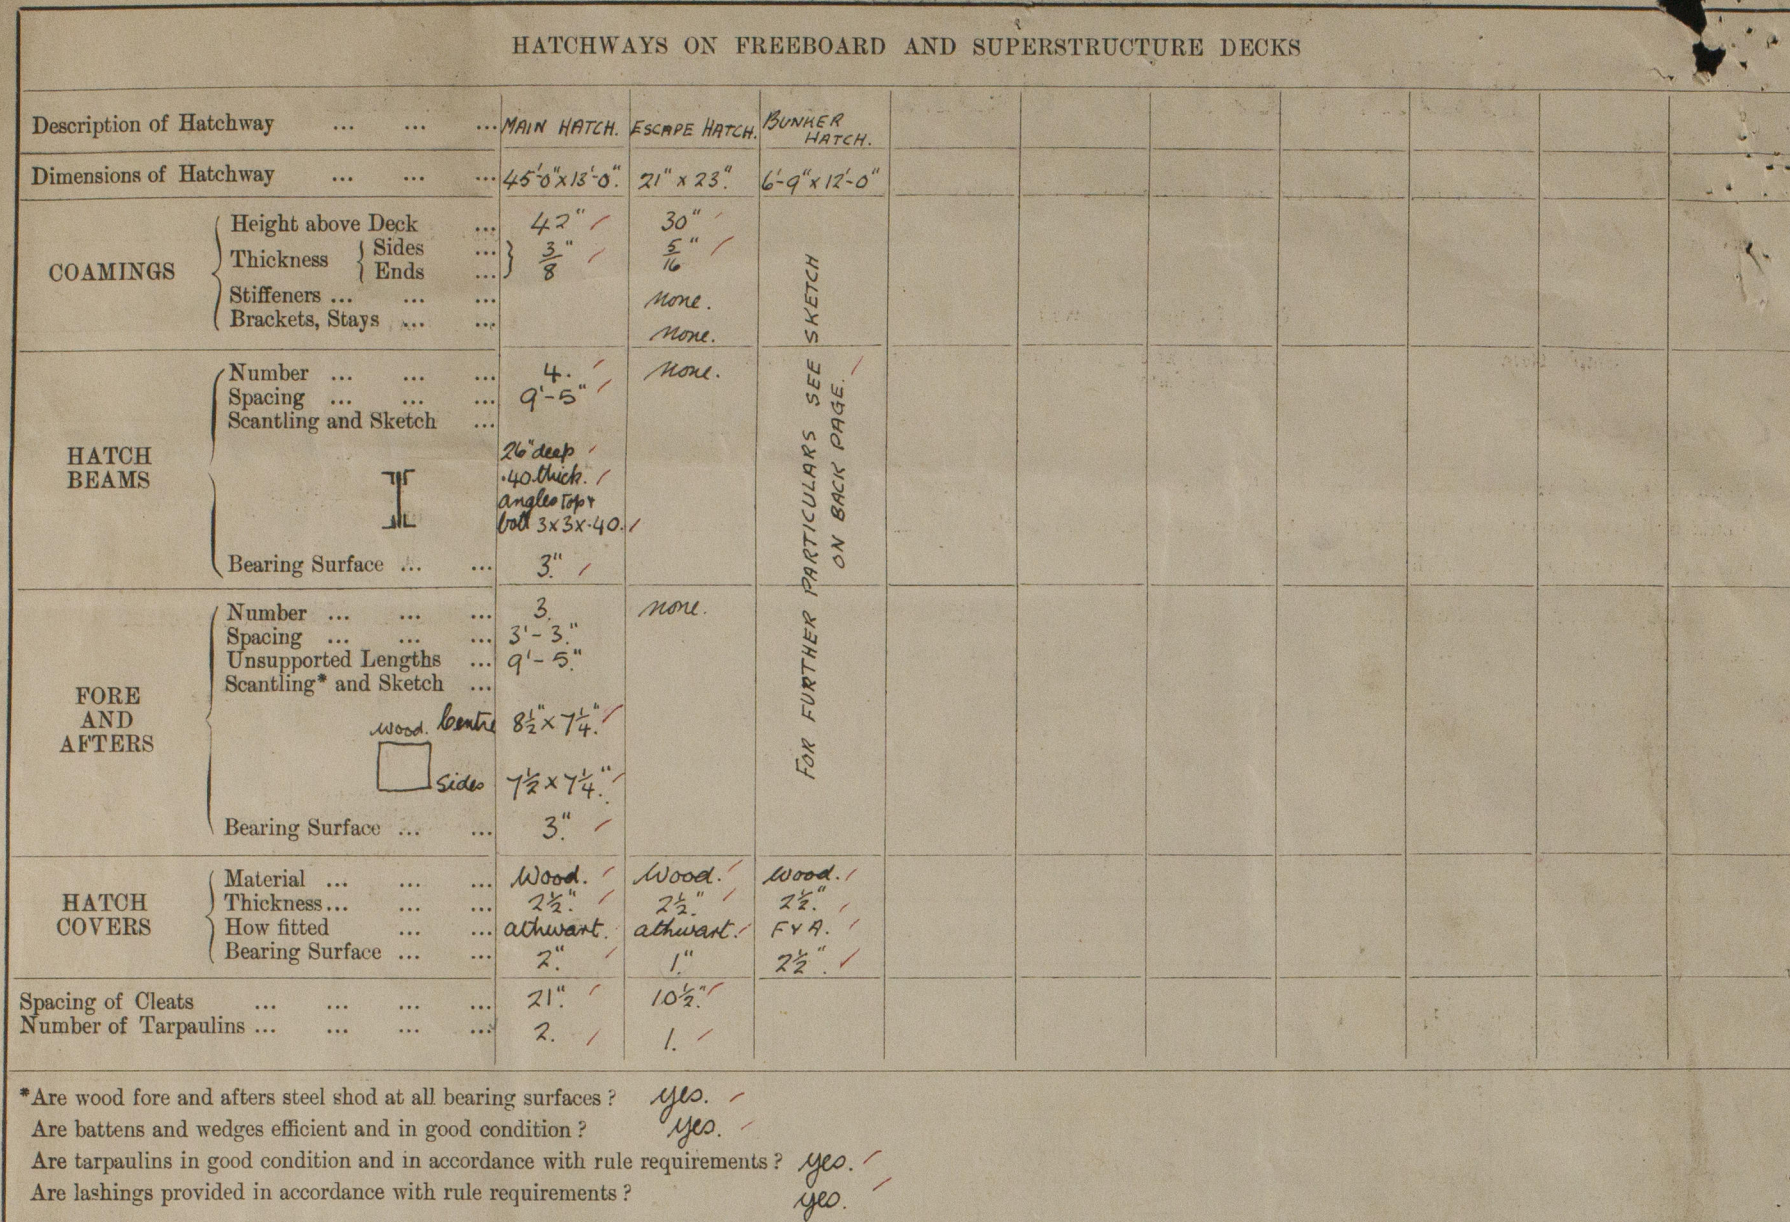 HATCHWAYS ON FREEBOARD AND SUPERSTRUCTURE DECKS
Description of Hatchway ... ... ... MAIN HATCH. ESCAPE HATCH. BUNKER HATCH.
Dimensions of Hatchway ... ... ... 45'-0" x 13'-0". 21" x 23". 6'-9" x 12'-0"
COAMINGS
Height above Deck ... 42" 30"
Thickness { Sides ... } 3/8" 5/16"
Ends ...
Stiffeners ... ... ... none.
Brackets, Stays ... ... none.
HATCH BEAMS
Number ... ... ... 4. none.
Spacing ... ... ... 9'-5"
Scantling and Sketch ...
26" deep
.40 thick.
angles top &
bott 3x3x.40.
Bearing Surface ... ... 3".
FOR FURTHER PARTICULARS SEE SKETCH
ON BACK PAGE.
FORE AND AFTERS
Number ... ... ... 3. none.
Spacing ... ... ... 3'-3".
Unsupported Lengths ... 9'-5".
Scantling* and Sketch ...
wood. Centre 8½" x 7¼".
Sides 7½ x 7¼".
Bearing Surface ... ... 3".
HATCH COVERS
Material ... ... ... Wood. Wood. Wood.
Thickness... ... ... 2½". 2½". 2½".
How fitted ... ... athwart. athwart. F & A.
Bearing Surface ... ... 2". 1". 2½".
Spacing of Cleats ... ... ... ... 21". 10½".
Number of Tarpaulins ... ... ... ... 2. 1.
*Are wood fore and afters steel shod at all bearing surfaces ? yes.
Are battens and wedges efficient and in good condition ? yes.
Are tarpaulins in good condition and in accordance with rule requirements ? yes.
Are lashings provided in accordance with rule requirements ? yes.